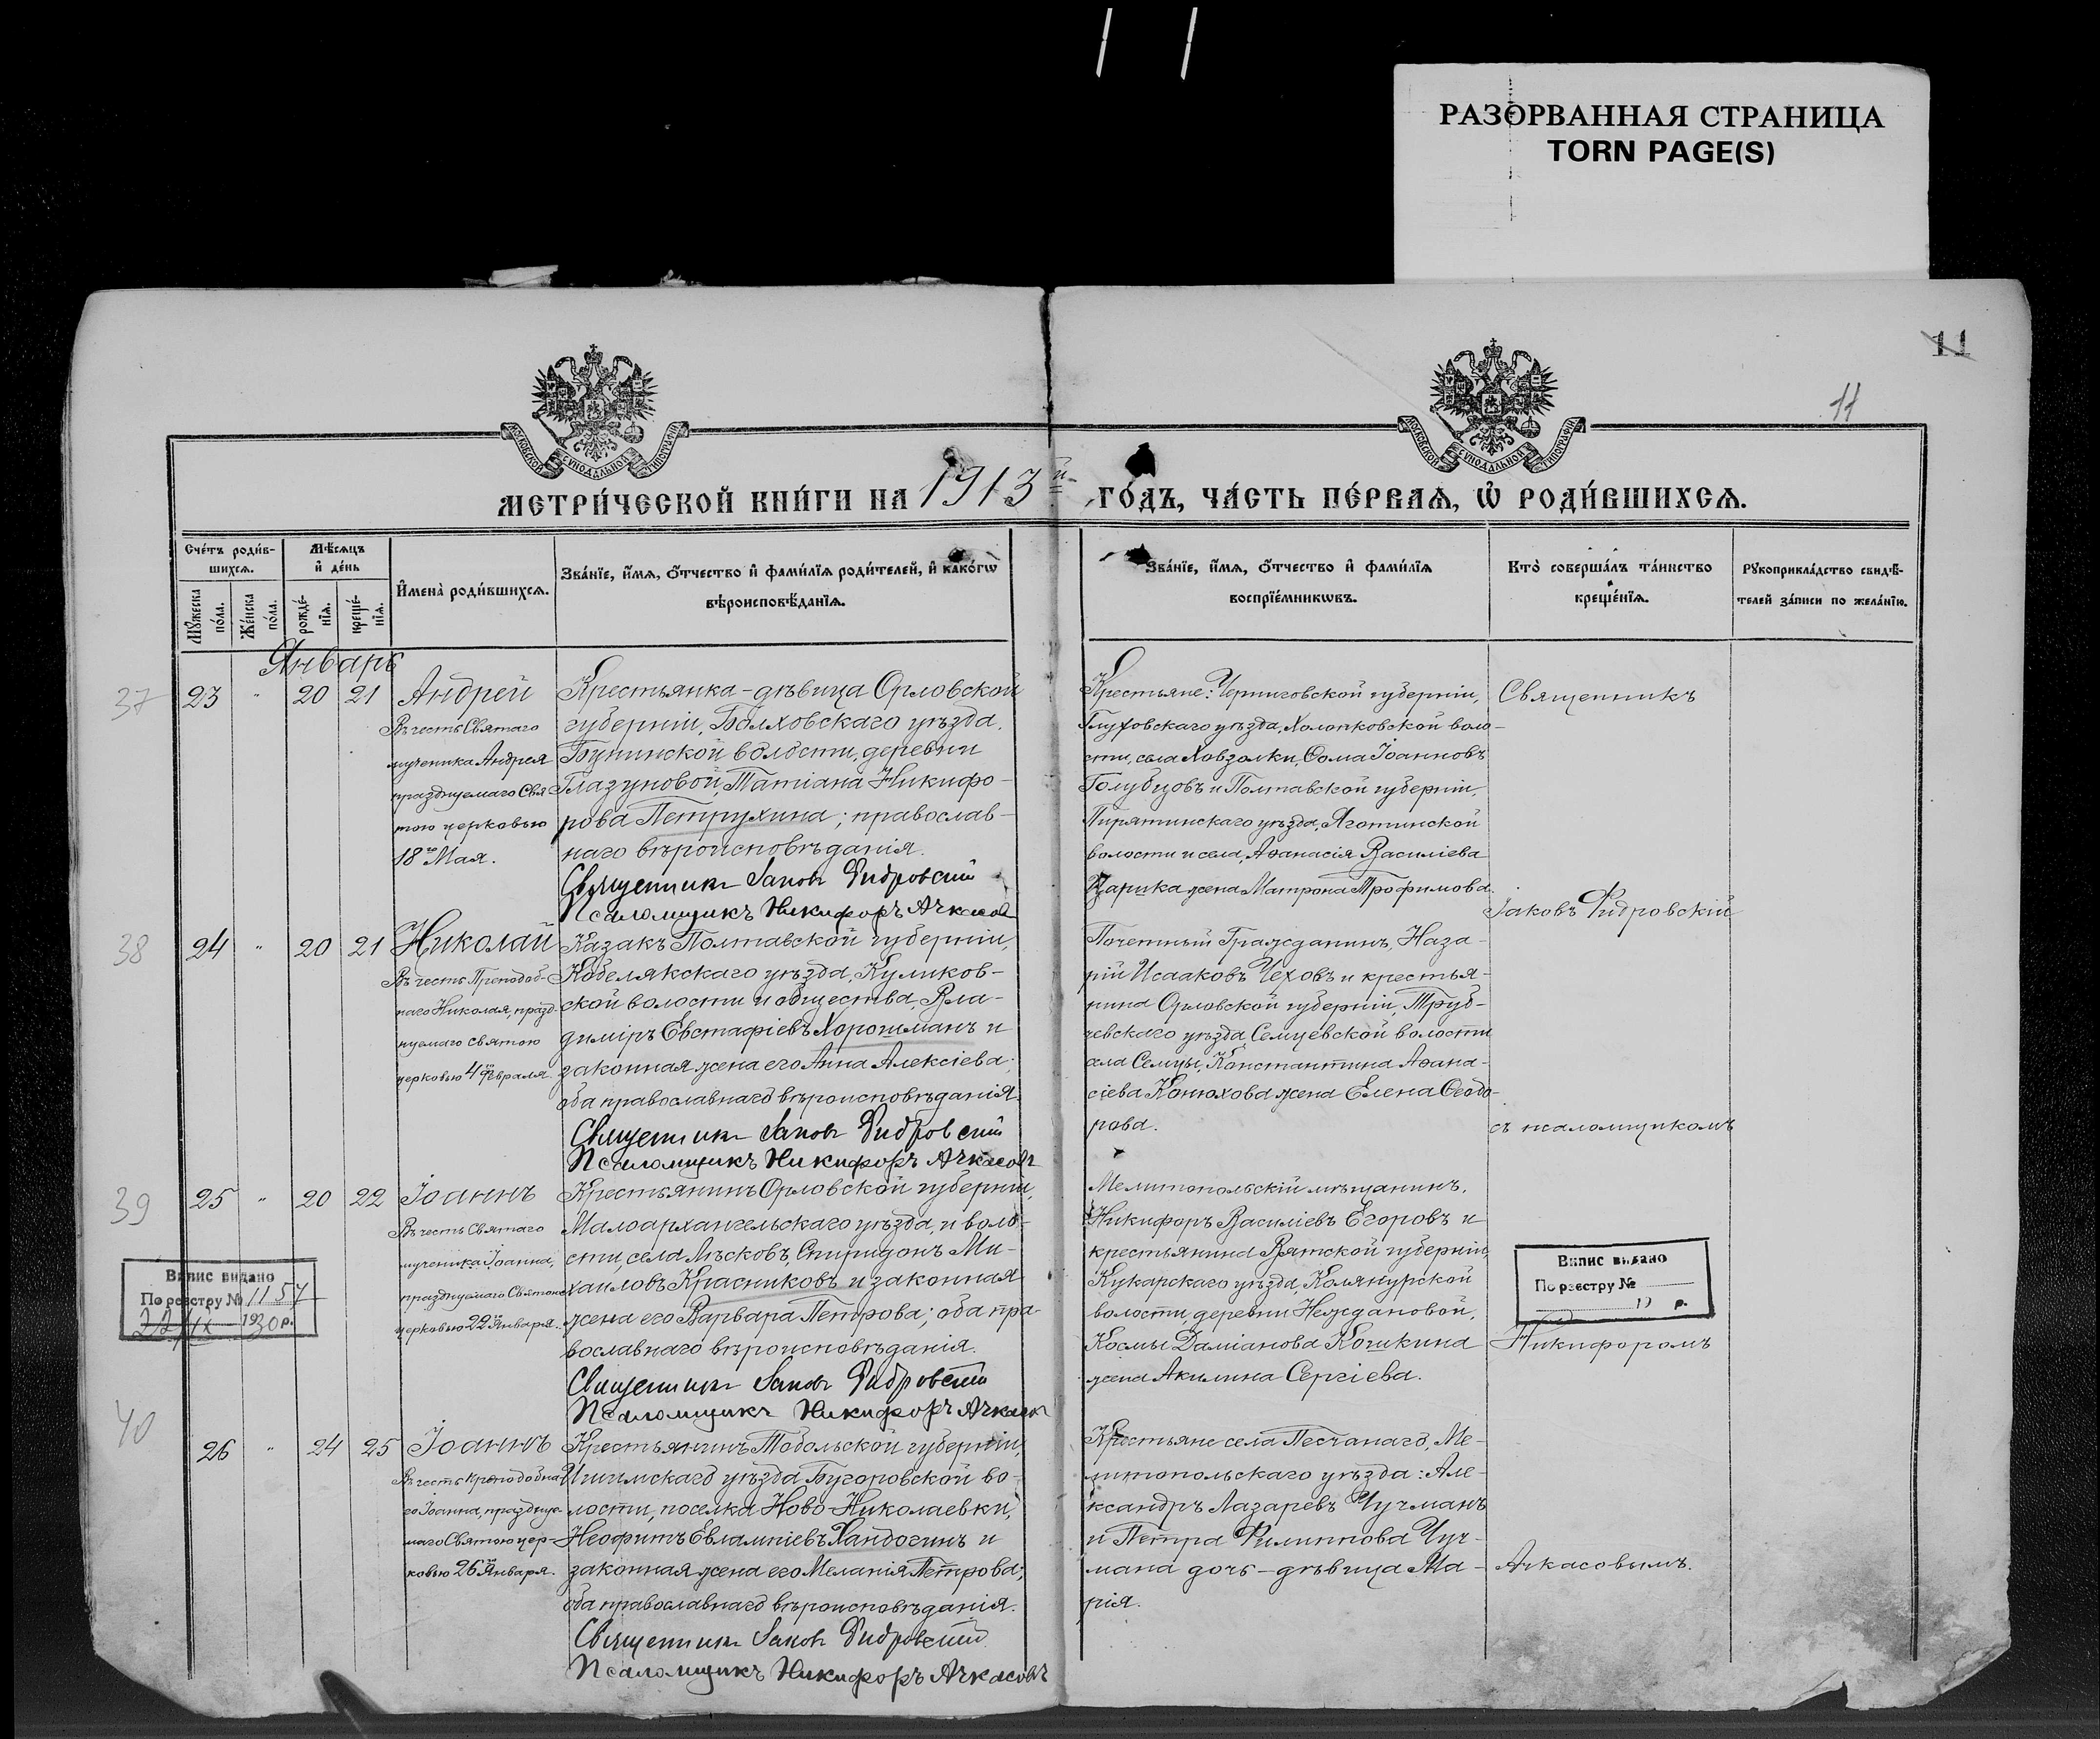 РАЗОРВАННАЯ СТРАНИЦА
TORN PAGE(S)
11
11
МОСКОВСКОЙ СѴНОДАЛЬНОЙ ТИПОГРАФІИ
МОСКОВСКОЙ СѴНОДАЛЬНОЙ ТИПОГРАФІИ
МЕТРИ́ЧЕСКОЙ КНИ́ГИ НА 1913й ГО́ДЪ, ЧА́СТЬ ПЕ́РВАѦ, Ѡ҆ РОДИ́ВШИХСѦ.
Сче́тъ роди́в-
шихсѧ.
Мꙋ́жеска
по́ла.
Же́нска
по́ла.
Мѣ́сѧцъ
и҆ де́нь
рожде́-
нїѧ.
креще́-
нїѧ.
И҆мена̀ роди́вшихсѧ.
Зва́нїе, и҆́мѧ, о҆́тчество и҆ фами́лїѧ роди́телей, и҆ како́гѡ
вѣроисповѣ́данїѧ.
Зва́нїе, и҆́мѧ, о҆́тчество и҆ фами́лїѧ
воспрїе́мникѡвъ.
Кто̀ соверша́лъ та́инство
креще́нїѧ.
Рꙋкоприкла́дство свидѣ́-
телей за́писи по жела́нїю.
Январь
37
23 " 20 21
Андрей
Въ честь Святаго
мученика Андрея
празднуемаго Свя
тою церковью
18го Мая.
Крестьянка-дѣвица Орловской
губерніи, Болховскаго уѣзда,
Бунинской волости, деревни
Глазуновой, Татіана Никифо-
рова Петрухина; православ-
наго вѣроисповѣданія.
Священникъ Іаковъ Фидровскій
Псаломщикъ Никифоръ Ачкасов
Крестьяне: Черниговской губерніи,
Глуховскаго уѣзда, Холопковской воло-
сти, села Ховзолки, Ѳома Іоанновъ
Голубцовъ и Полтавской губерніи,
Пирятинскаго уѣзда, Яготинской
волости и села, Аѳанасія Василіева
Царика жена Матрона Трофимова.
Священникъ
Іаковъ Фидровскій
38
24 " 20 21
Николай
Въ честь Преподоб-
наго Николая, празд-
нуемаго святою
церковью 4го Февраля.
Казакъ Полтавской губерніи,
Кобелякскаго уѣзда, Куликов-
ской волости и общества, Вла-
диміръ Евстафіевъ Хорошманъ и
законная жена его Анна Алексіева;
оба православнаго вѣроисповѣданія.
Священникъ Іаковъ Фидровскій
Псаломщикъ Никифоръ Ачкасовъ
Почетный Гражданинъ, Наза-
рій Исааковъ Чеховъ и крестья-
нина Орловской губерніи, Труб-
чевскаго уѣзда, Семцевской волости
села Семцы, Константина Аѳана-
сіева Конюхова жена Елена Ѳеодо-
рова.
съ псаломщикомъ
39
25 " 20 22
Іоаннъ
Въ честь Святаго
мученика Іоанна,
празднуемаго Святою
церковью 22го Января.
Крестьянинъ Орловской губерніи,
Малоархангельскаго уѣзда, и воло-
сти, села Лѣсковъ, Спиридонъ Ми-
хаиловъ Красниковъ и законная
жена его Варвара Петрова; оба пра-
вославнаго вѣроисповѣданія.
Священникъ Іаковъ Фидровскій
Псаломщикъ Никифоръ Ачкасов
Мелитопольскій мѣщанинъ,
Никифоръ Василіевъ Егоровъ и
крестьянина Вятской губерніи,
Кукарскаго уѣзда, Колянурской
волости, деревни Неждановой,
Космы Даміанова Кошкина
жена Акилина Сергіева.
Никифоромъ
Випис видано
По реєстру № 1157
22/IX 1930 р.
Випис видано
По реєстру №
19 р.
40
26 " 24 25
Іоаннъ
Въ честь преподобна-
го Іоанна, праздnуе-
маго Святою цер-
ковью 26го Января.
Крестьянинъ Тобольской губерніи,
Ишимскаго уѣзда Бугоровской во-
лости, поселка Ново-Николаевки,
Неофитъ Евлампіевъ Хандогинъ и
законная жена его Меланія Петрова;
оба православнаго вѣроисповѣданія.
Священникъ Іаковъ Фидровскій
Псаломщикъ Никифоръ Ачкасовъ
Крестьяне села Песчанаго, Ме-
литопольскаго уѣзда: Але-
ксандръ Лазаревъ Чучманъ
и Петра Филиппова Чуч-
мана дочь-дѣвица Ма-
рія.
Ачкасовымъ.